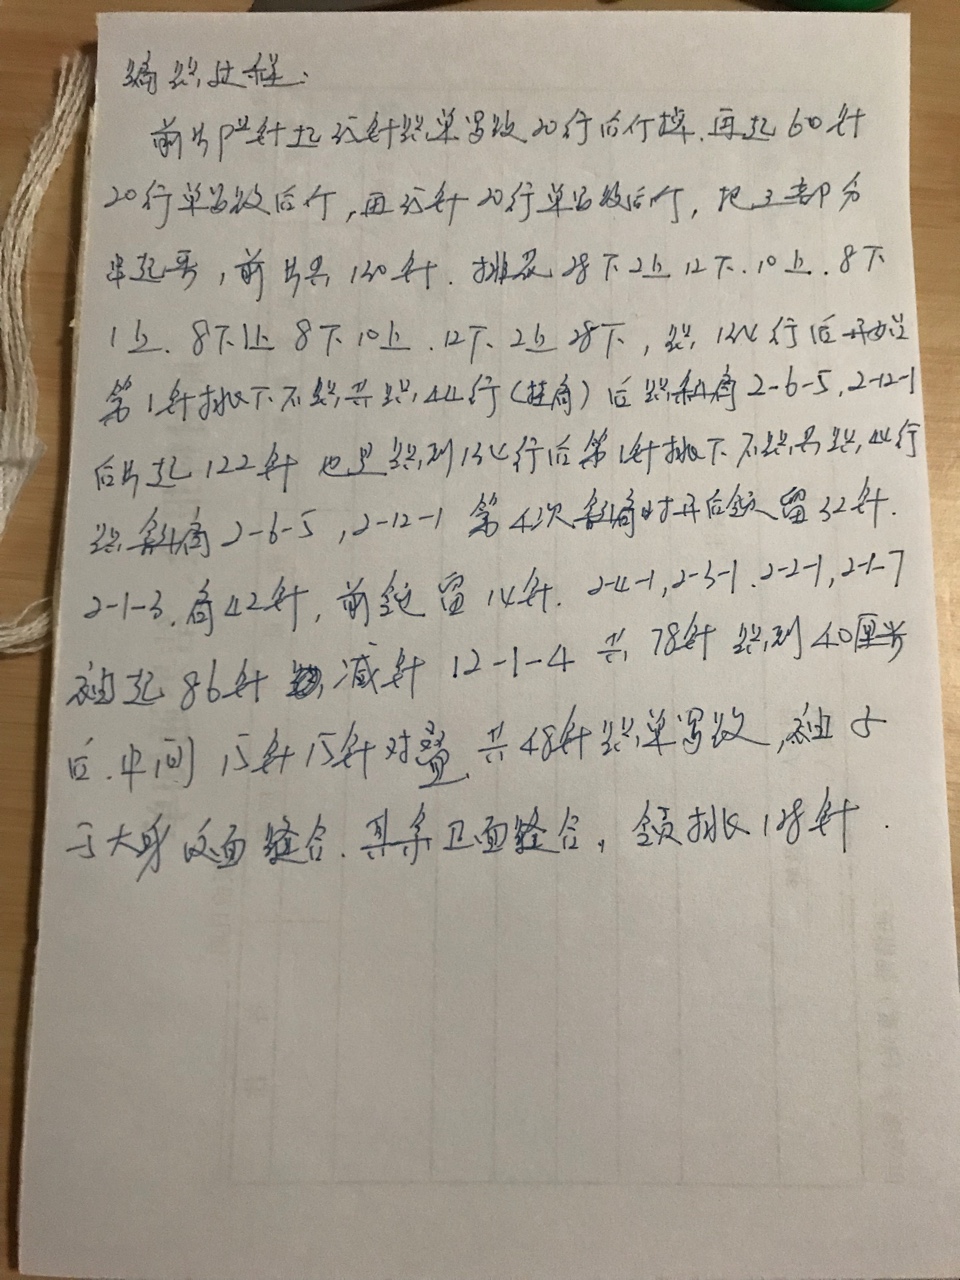 编织过程:
前片13号针起35针织单罗纹20行后停掉.再起60针
20行单罗纹后停,再35针20行单罗纹后停,把三部分
串起来,前片共130针.排花28下2上12下.10上.8下
1上.8下1上8下10上.12下.2上28下,织134行后开始
第1针挑下不织共织44行(挂肩)后织斜肩2-6-5,2-12-1
后片起122针 也是织到134行后第1针挑下不织共织44行
织斜肩2-6-5,2-12-1 第4次斜肩时开后领留32针.
2-1-3.肩42针,前领留14针.2-4-1,2-3-1.2-2-1,2-1-7
袖起86针 减针12-1-4 共78针织到40厘米
后.中间15针15针对叠.共48针织单罗纹,袖
于大身反面缝合.其余正面缝合,领挑128针.